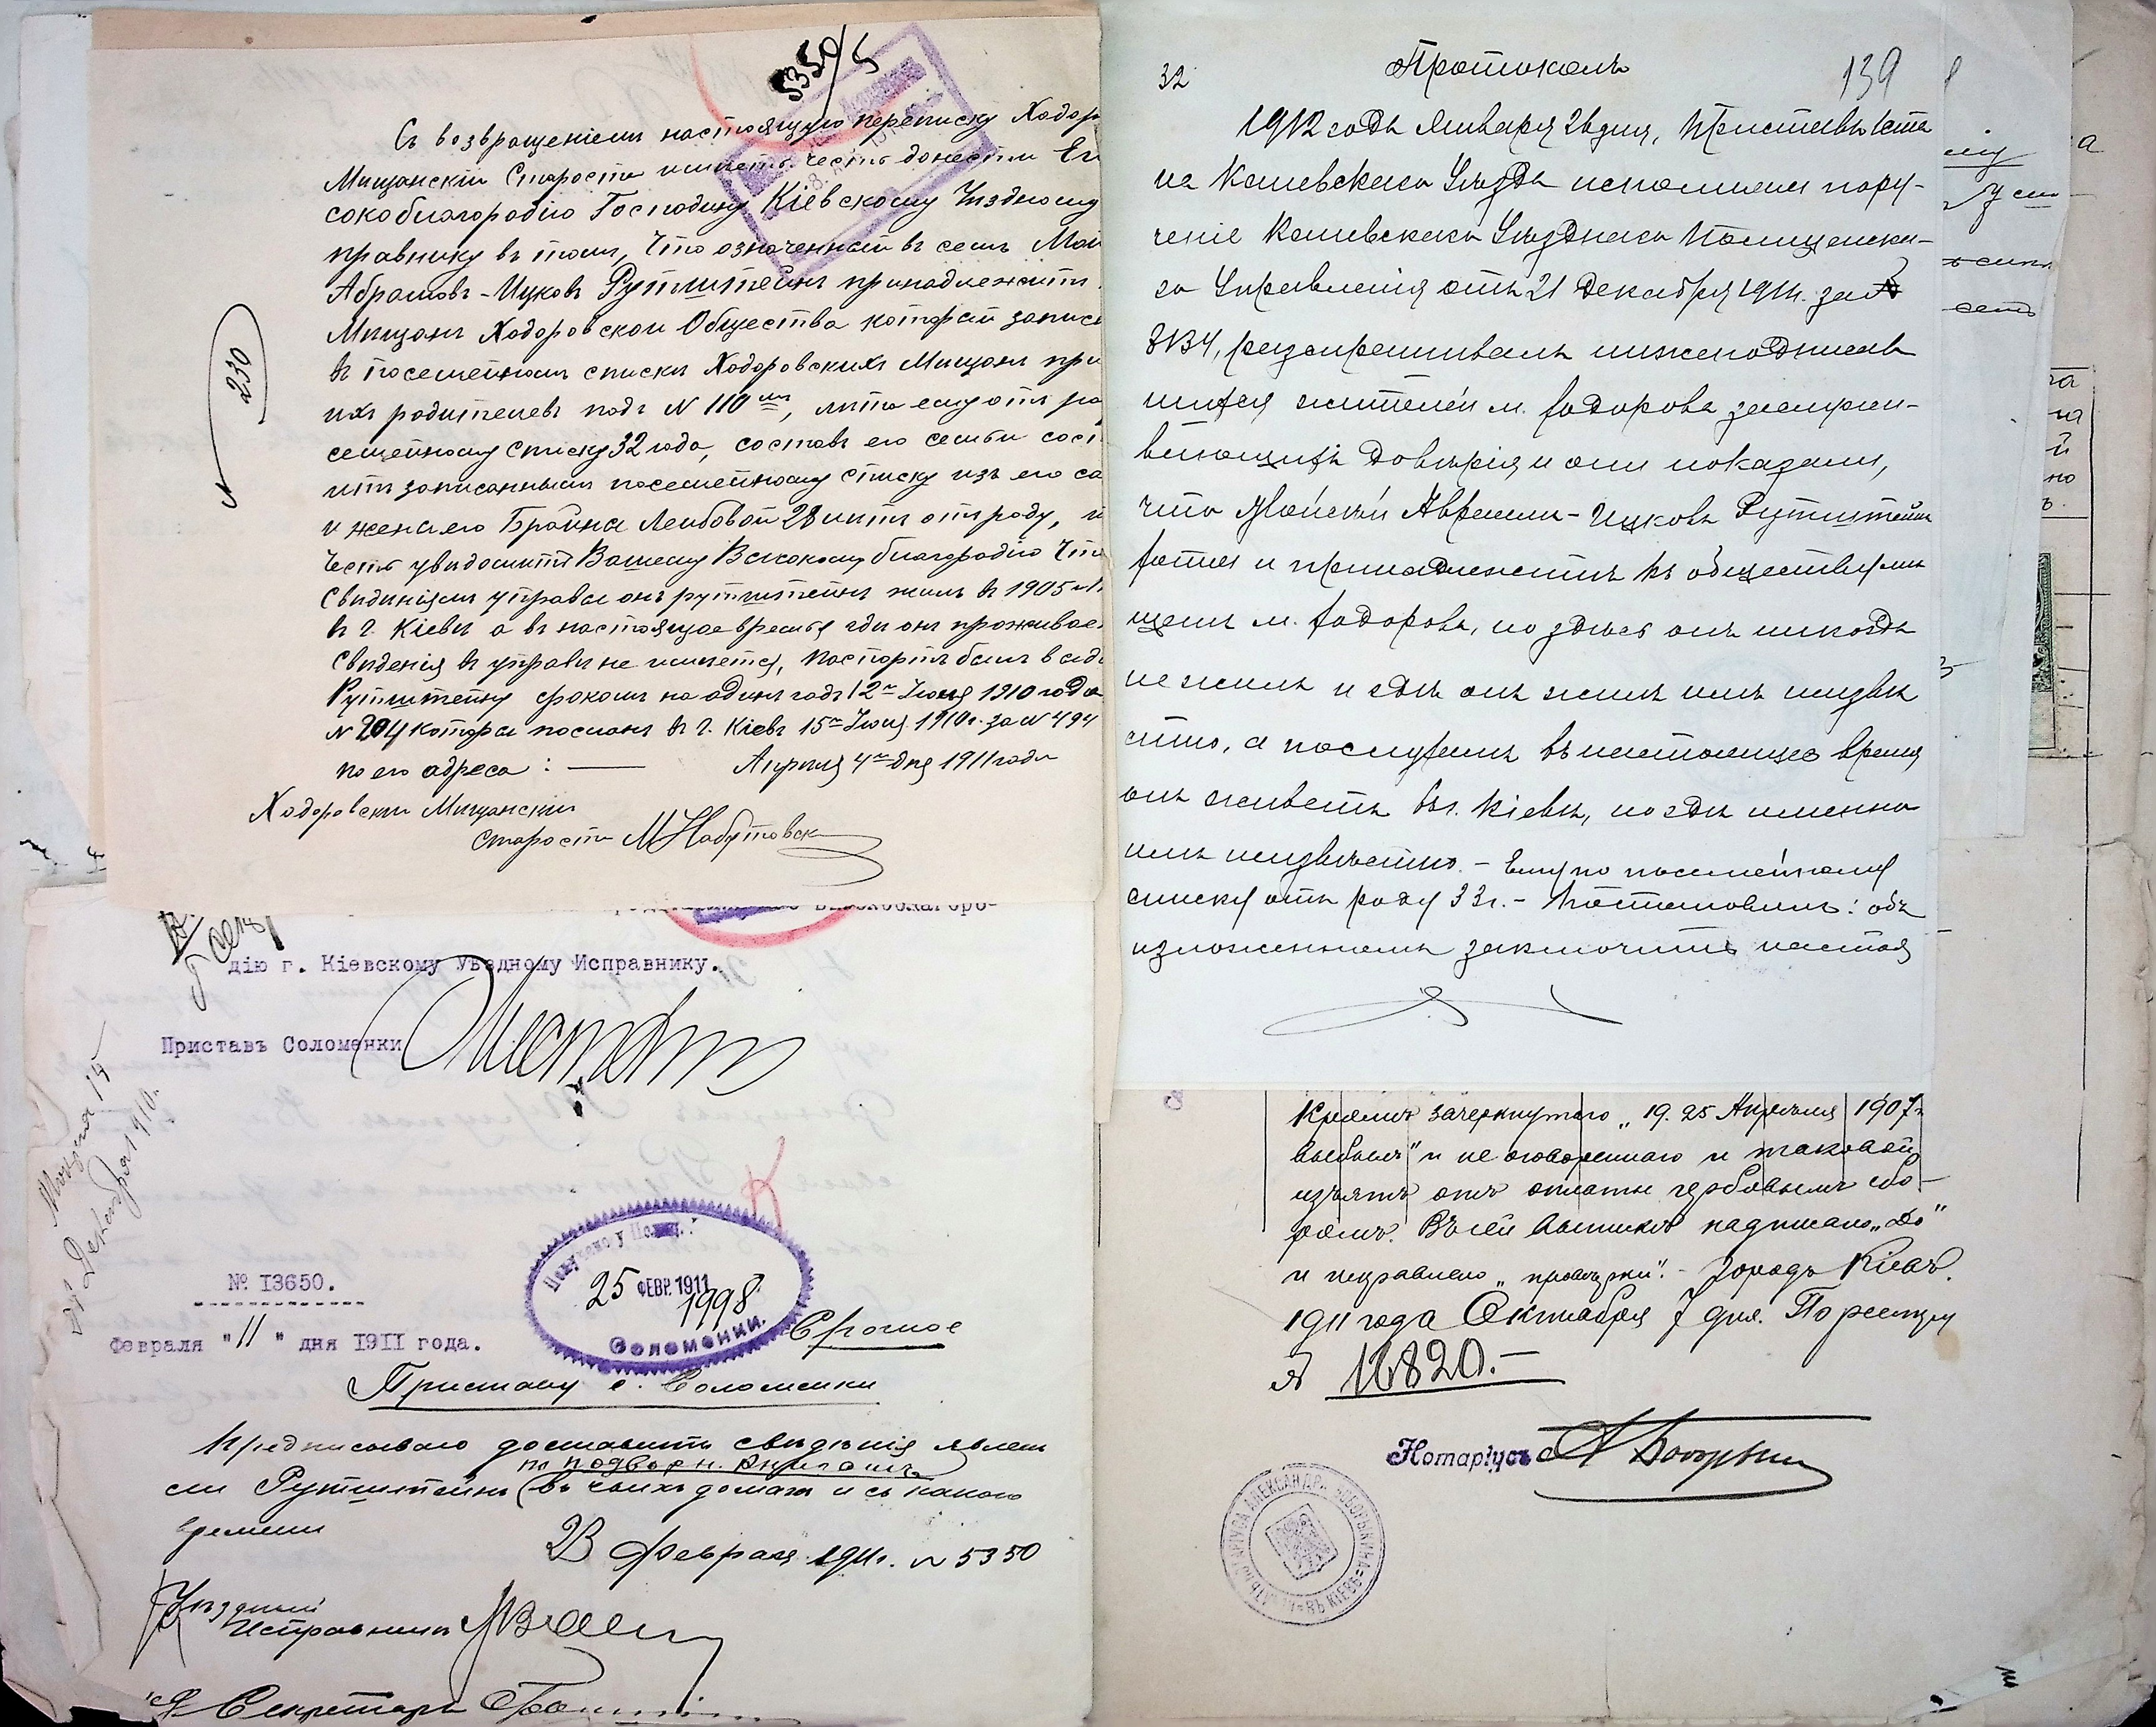 5350/5
Съ возвращеніемъ настоящую переписку Ходор
Мищанскій Староста имѣетъ честь донести Ег
сокоблагородію Господину Кіевскому Уѣздному
правнику въ томъ, Что означенный въ семъ Мой
Абрамовъ-Ицковъ Рутштейнъ принадлежитъ
Мищанъ Ходоровской Общества который записа
въ посемейномъ списки Ходоровскихъ Мищанъ при
ихъ родителевъ подъ N 110мъ, лѣта ему отъ ро
семейному списку 32 года, составъ его семьи сост
итъ записаннымъ посемейному списку изъ его са
и жена его Брайна Лейбовой 28 литъ отъ роду, и
Честь увидомитъ Вашему Высокому благородію Что
Свидиніямъ управы онъ рутштейнъ жилъ въ 1905 м
въ г. Кіевы а въ настоящое время гди онъ проживае
Свиденія въ управы не имеется, Паспортъ былъ выда
Рутштейну срокомъ на одинъ годъ 12го Іюня 1910 года
N 204 которы посланъ въ г. Кіевъ 15го Іюня 1910г. за N 494
по его адреса: — Апрыля 4го дня 1911 года
Ходоровскій Мищанскій
Староста М Набутовск
N 230
дію г. Кіевскому Уѣздному Исправнику.
Приставъ Соломенки
15
Декабря 1910.
№ 13650.
Февраля "11" дня 1911 года.
25 ФЕВР. 1911
1998
Соломенки.
Срочное
Приставу с. Соломенки
Предписываю доставить свѣдѣнія явлен
по подворн. книгамъ
ли Рутштейнъ (въ чьихъ домахъ и съ какого
времени
23 Февраля 1911г. N 5350
Уѣздный
Исправникъ
Секретарь
32 Протоколъ 139
1912 года Января 26 дня, Приставъ 1 ста
на Каневскаго Уѣзда исполняя пору-
ченіе Каневскаго Уѣзднаго Полицейска-
го Управленія отъ 21 Декабря 1911г. за N
8134, разспрашивалъ нижеподписав
шихся жителей м. Ходорова заслужи-
вающихъ довѣрія и они показали,
что Мойсей Аврамъ-Ицковъ Рутштейнъ
хотя и принадлежитъ къ обществу мѣ
щанъ м. Ходорова, но здѣсь онъ никогда
не жилъ и гдѣ онъ жилъ имъ неизвѣ
стно, а по слухамъ въ настоящее время
онъ живетъ въ г. Кіевѣ, но гдѣ именно
имъ неизвѣстно. – Ему по посемейному
списку отъ роду 33 г. – Постановилъ: объ
изложенномъ заключить настоя
Кромѣ зачеркнутаго „19. 25 Апрѣля 1907 г.
выбылъ" и не оговореннаго и таковой
изъятъ отъ оплаты гербовымъ сбо-
ромъ. Въ сей выпискѣ надписано „До"
и исправлено „провѣрки". – Городъ Кіевъ.
1911 года Октября 7 дня. По реестру
№ 16820. –
Нотаріусъ